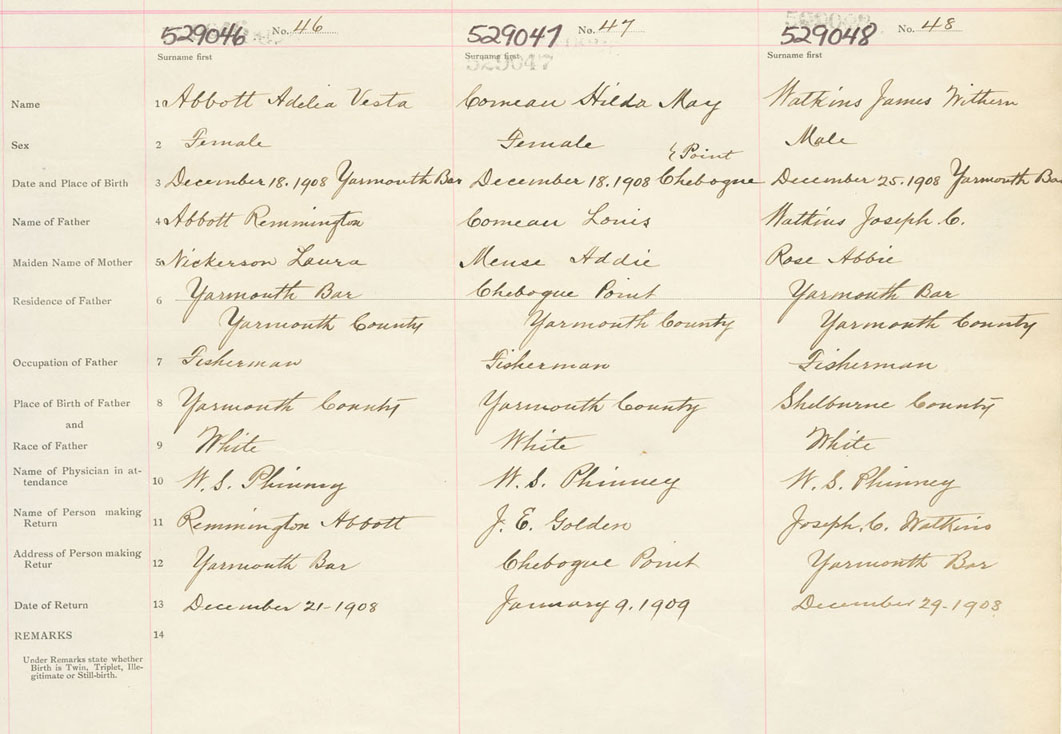 529046 No. 46 529047 No. 47 529048 No. 48
Surname first Surname first Surname first
529047
Name 1 Abbott Adelia Vesta Comeau Hilda May Watkins James Withern
Sex 2 Female Female Male
{Point
Date and Place of Birth 3 December 18. 1908 Yarmouth Bar December 18. 1908 Chebogue December 25. 1908 Yarmouth Bar
Name of Father 4 Abbott Remmington Comeau Louis Watkins Joseph. C.
Maiden Name of Mother 5 Nickerson Laura Meuse Addie Rose Abbie
Residence of Father 6 Yarmouth Bar Chebogue Point Yarmouth Bar
Yarmouth County Yarmouth County Yarmouth County
Occupation of Father 7 Fisherman Fisherman Fisherman
Place of Birth of Father 8 Yarmouth County Yarmouth County Shelburne County
and
Race of Father 9 White White White
Name of Physician in at-
tendance 10 W. S. Phinney W. S. Phinney W. S. Phinney
Name of Person making
Return 11 Remmington Abbott J. E. Golden Joseph. C. Watkins
Address of Person making
Retur 12 Yarmouth Bar Chebogue Point Yarmouth Bar
Date of Return 13 December 21-1908 January 9. 1909 December 29-1908
REMARKS 14
Under Remarks state whether
Birth is Twin, Triplet, Ille-
gitimate or Still-birth.